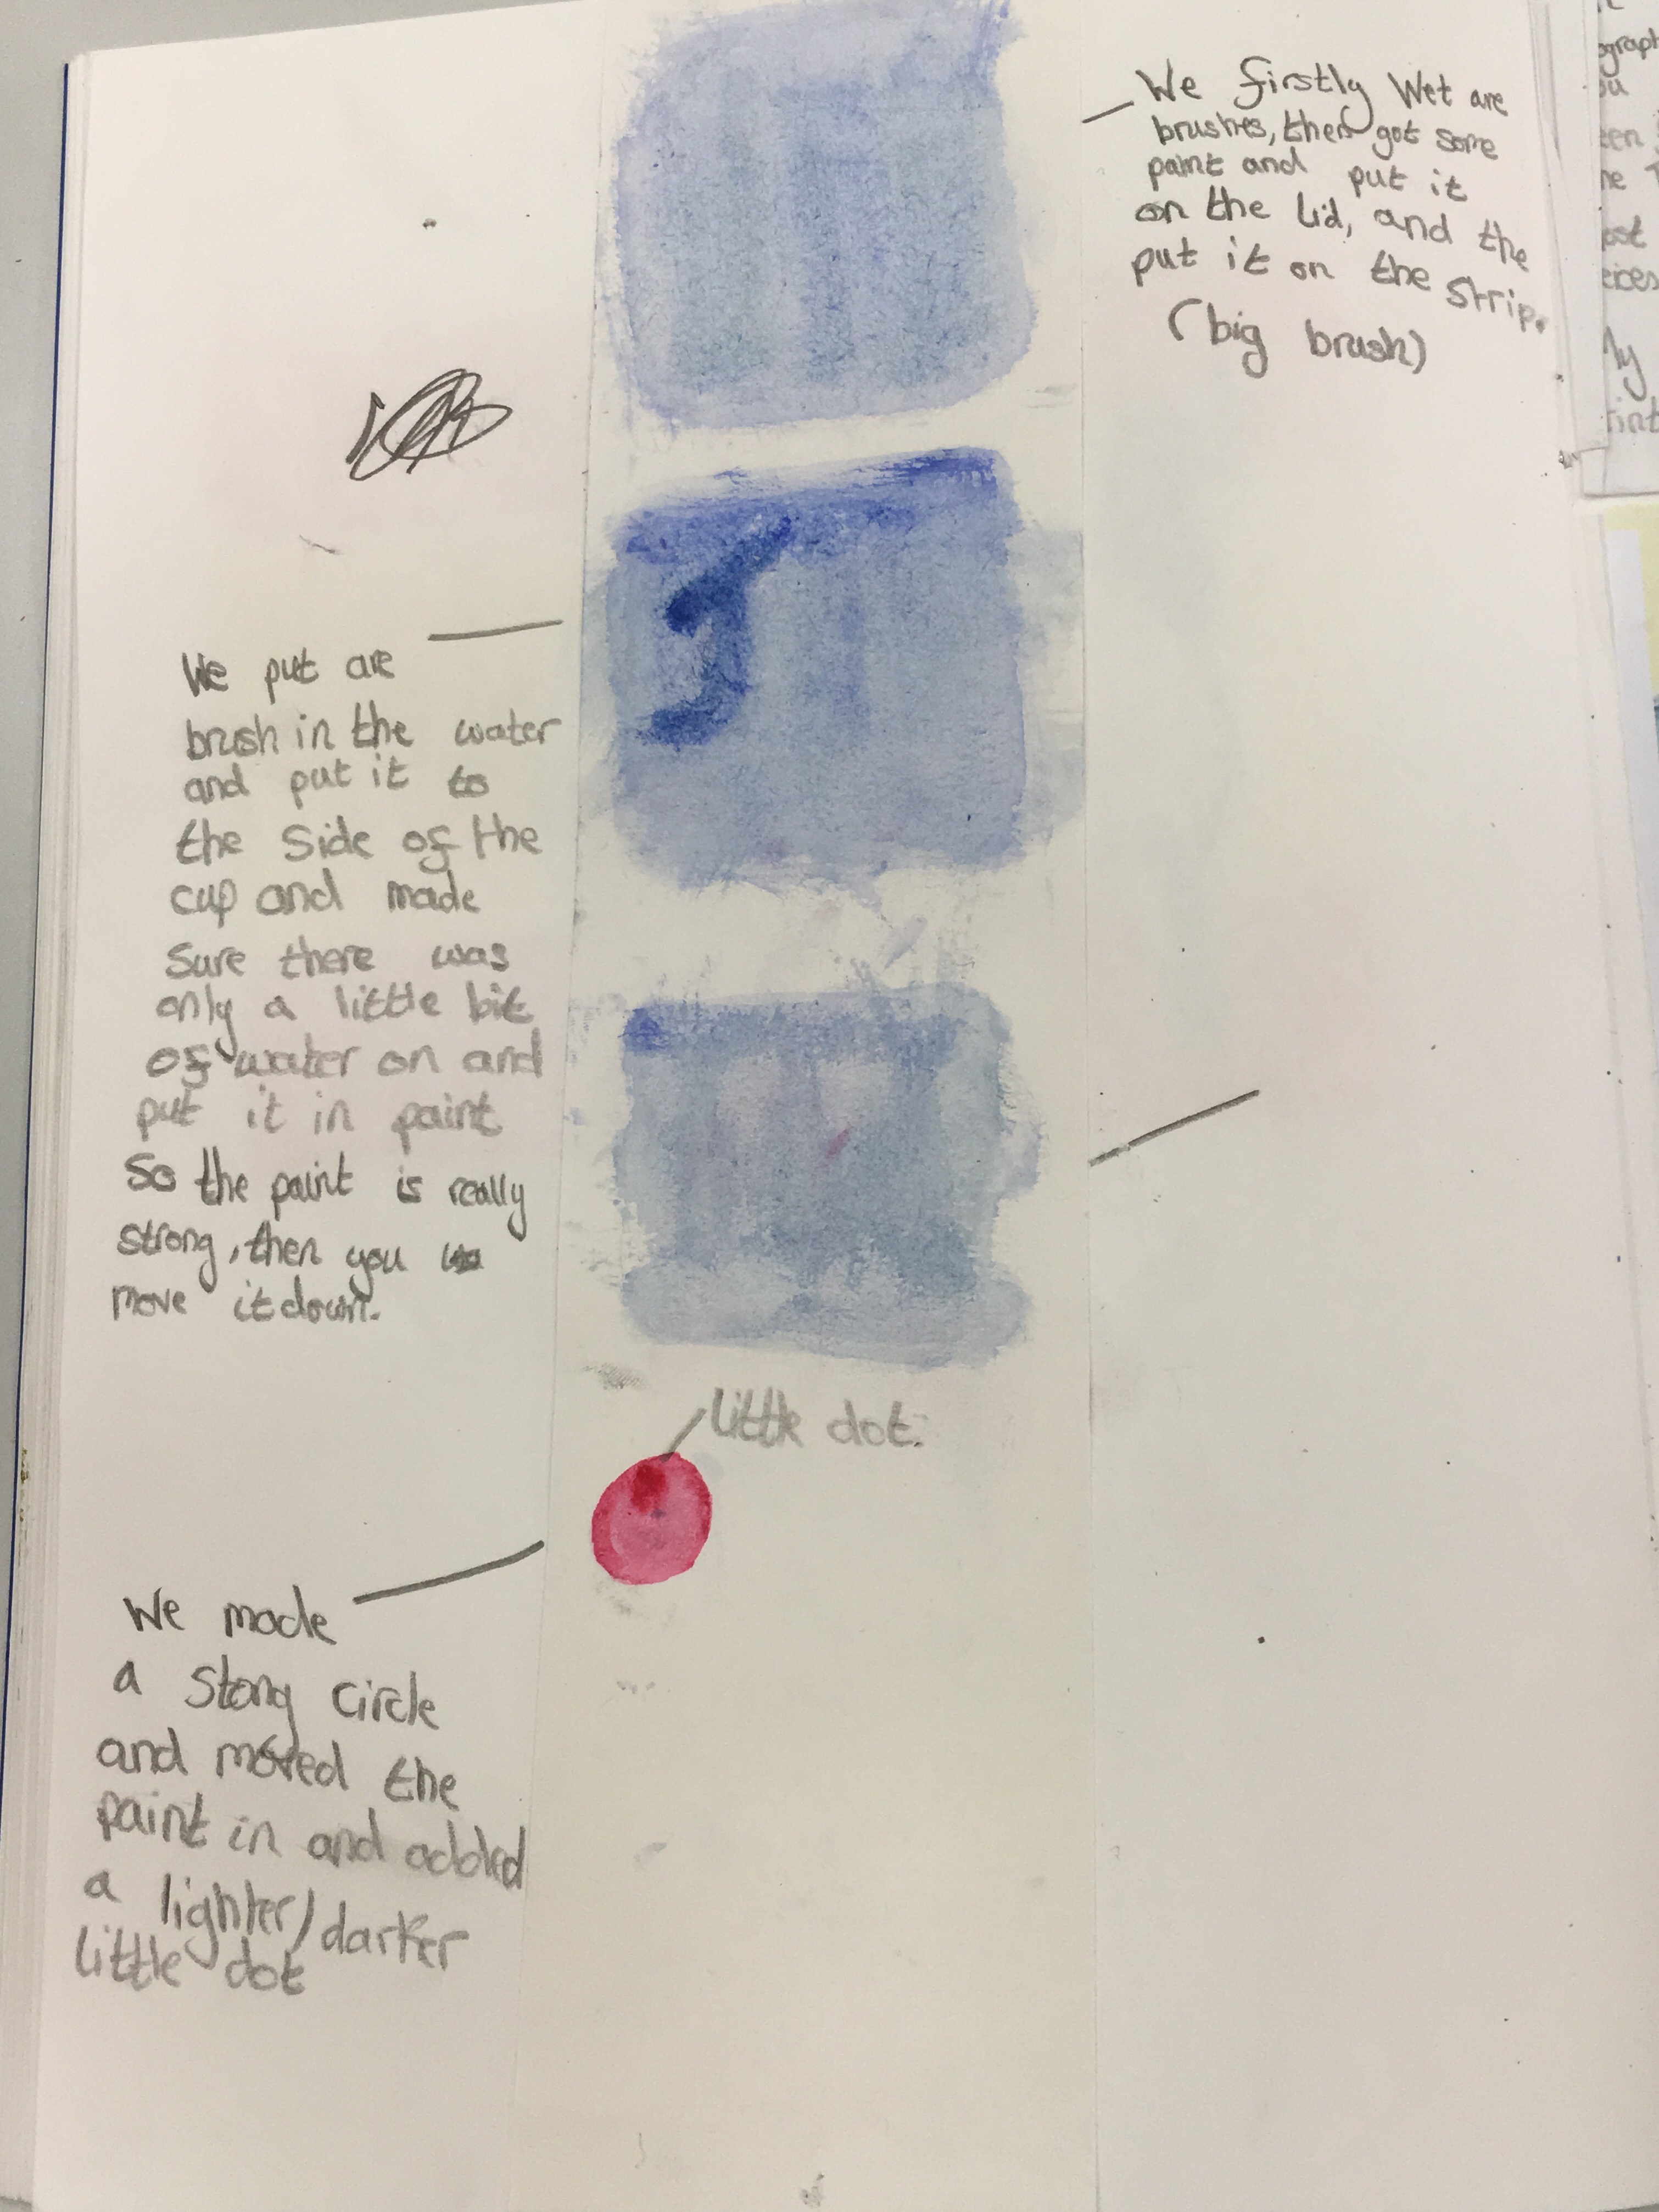 We firstly Wet are
brushes, then got some
paint and put it
on the lid, and the
put it on the strip.
(big brush)
We put are
brush in the water
and put it to
the side of the
cup and made
sure there was
only a little bit
of water on and
put it in paint
so the paint is really
strong, then you
move it down.
little dot.
We made
a stong circle
and moved the
paint in and added
a lighter/darker
little dot